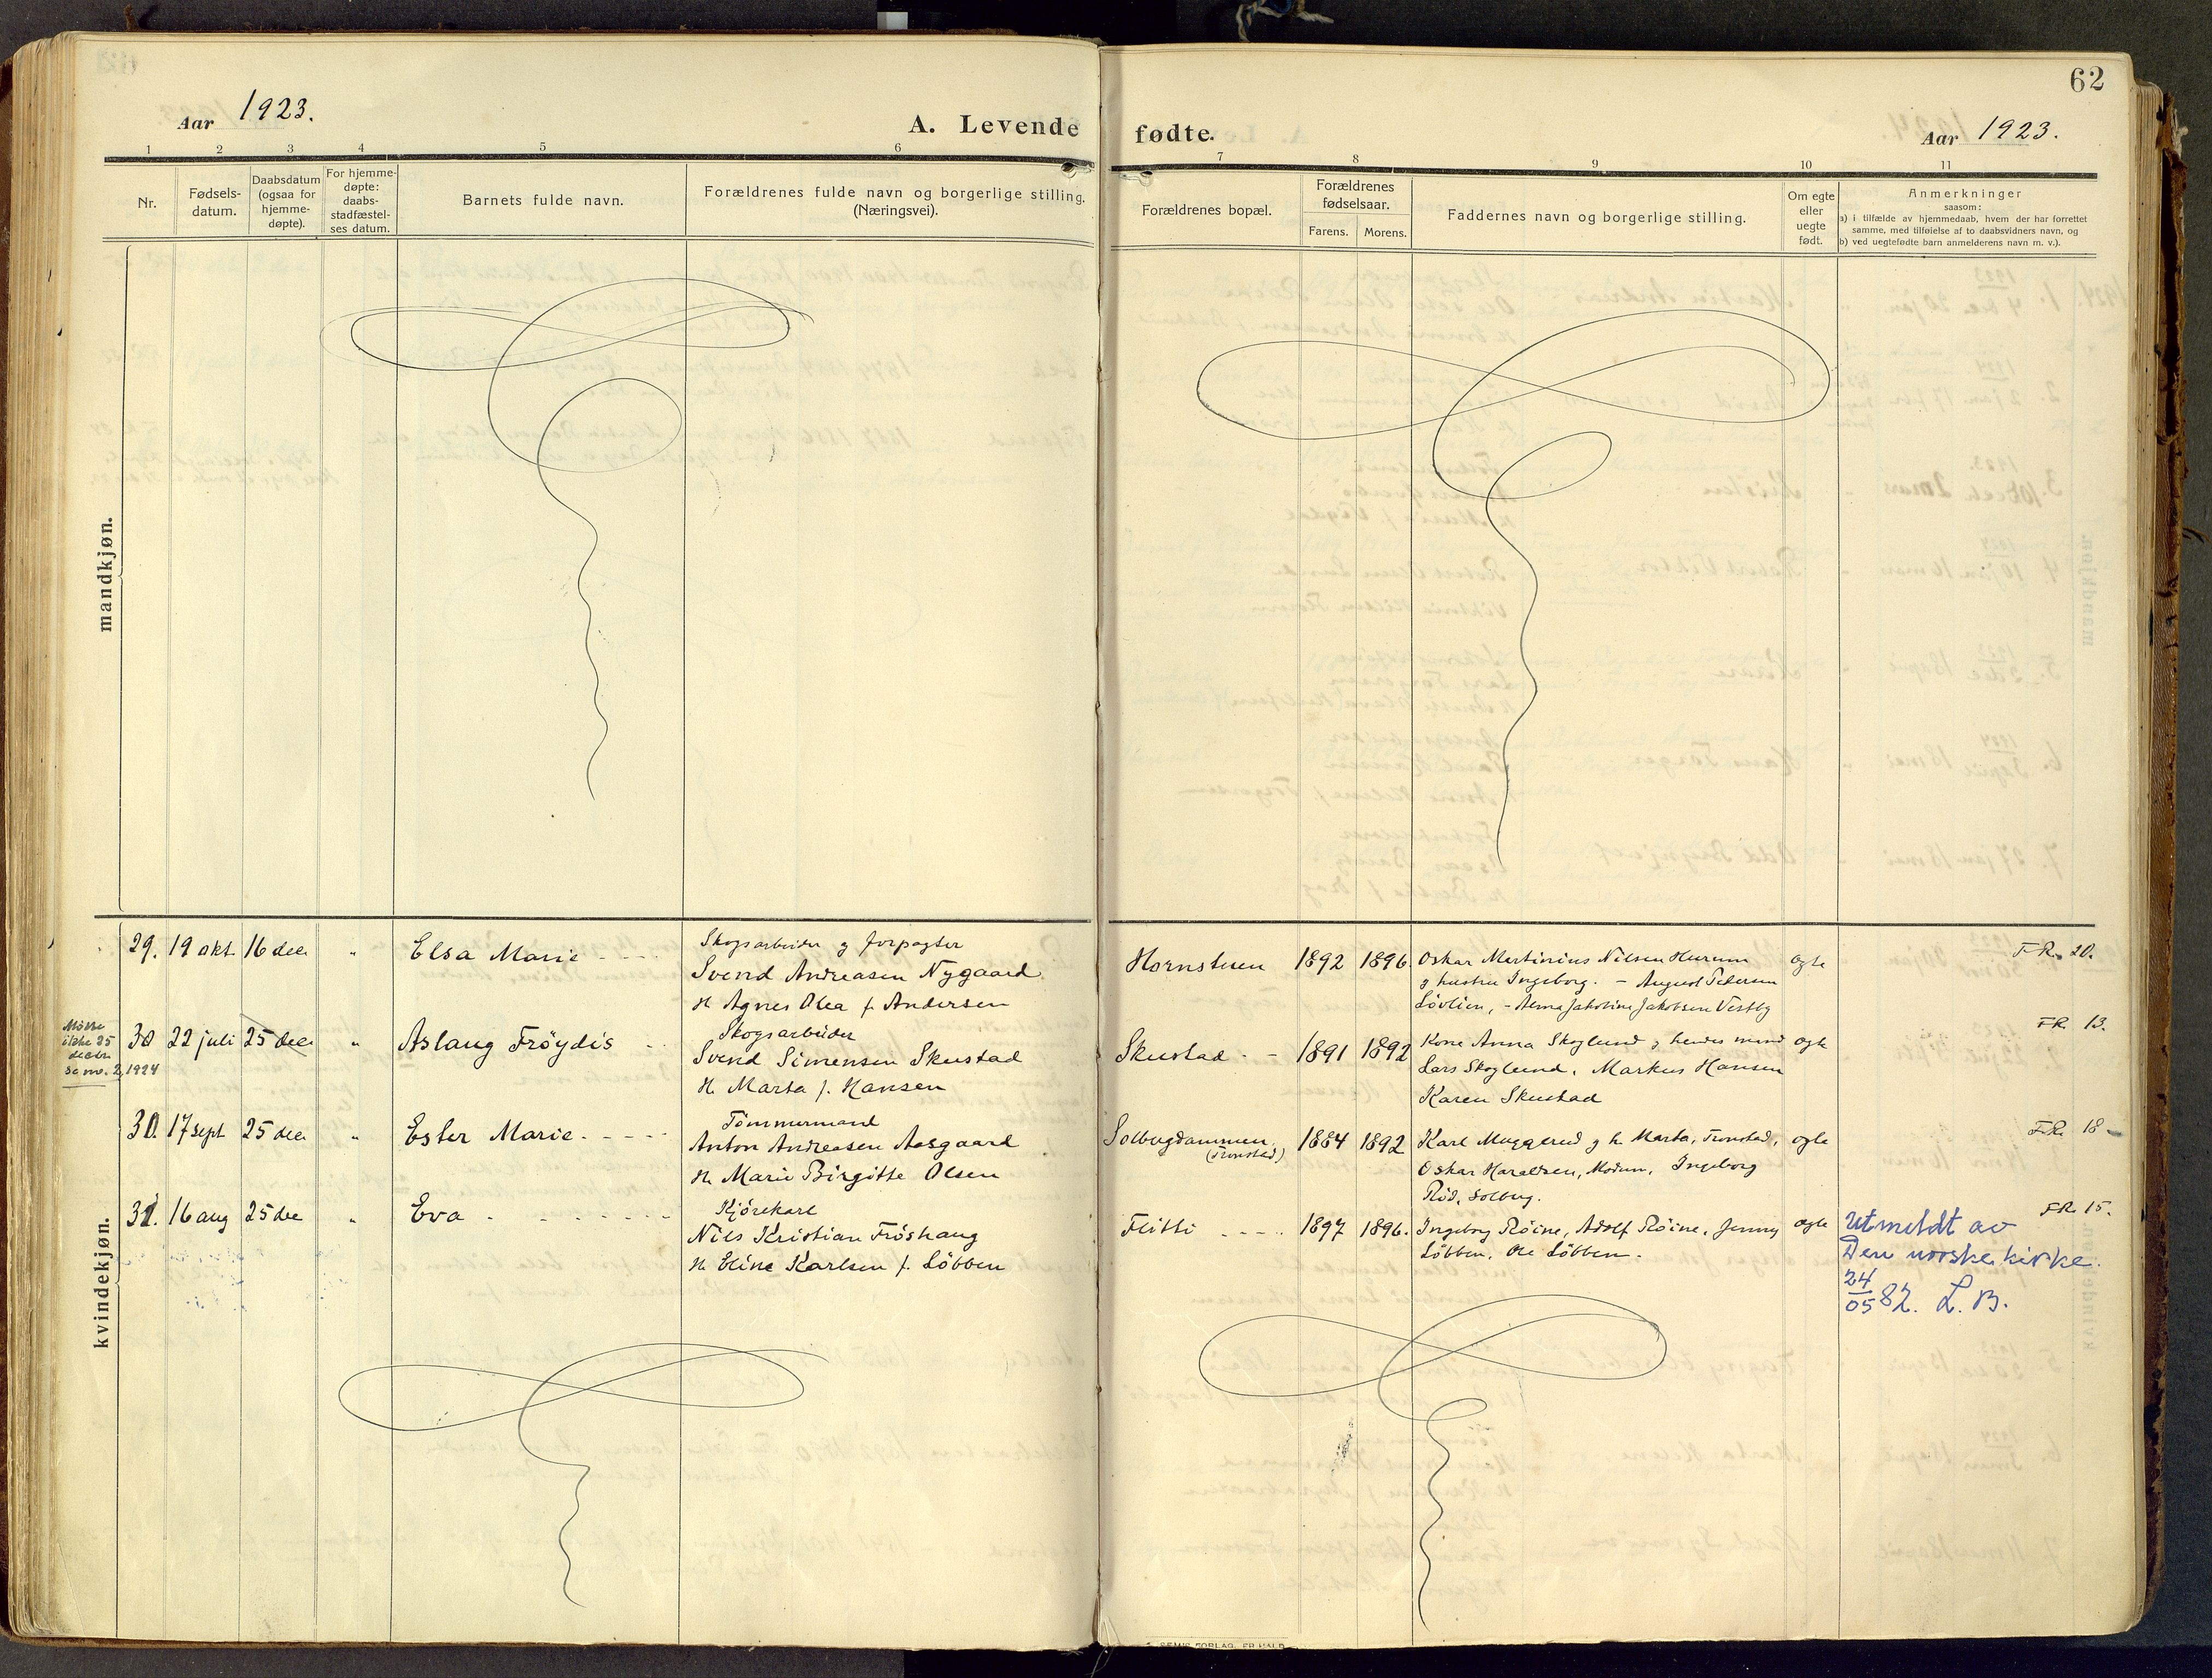 62
Aar 1923.
A. Levende fødte.
Aar 1923.
1 2 3 4 5 6 7 8 9 10 11
Nr.
Fødsels-
datum.
Daabsdatum
(ogsaa for
hjemme-
døpte).
For hjemme-
døpte:
daabs-
stadfæstel-
ses datum.
Barnets fulde navn.
Forældrenes fulde navn og borgerlige stilling.
(Næringsvei).
Forældrenes bopæl.
Forældrenes
fødselsaar.
Farens. Morens.
Faddernes navn og borgerlige stilling.
Om egte
eller
uegte
født.
Anmerkninger
saasom:
a) i tilfælde av hjemmedaab, hvem der har forrettet
samme, med tilføielse af to daabsvidners navn, og
b) ved uegtefødte barn anmelderens navn m. v.).
mandkjøn.
kvindekjøn.
29. 19 okt. 16 dec " Elsa Marie
Skogsarbeider og forpagter
Svend Andreasen Nygaard
H Agnes Olea f. Andersen
Hornstuen 1892 1896.
Oskar Martinius Nilsen Hurum
og hustru Ingeborg. - August Pedersen
Lövlien, - Anna Jakobine Jakobsen Vestby
egte
FR. 20.
Møtte
ikke 25
decbr
se no. 2, 1924
30 22 juli 25 dec " Aslaug Fröydis
Skogsarbeider
Svend Simensen Skustad
H. Marta f. Hansen
Skustad 1891 1892
Kone Anna Skoglund og hendes mand
Lars Skoglund. Markus Hansen
Karen Skustad
egte
FR. 13.
30. 17 sept 25 dec " Ester Marie
Tömmermand
Anton Andreasen Aasgaard
H. Marie Birgitte Olsen
Solbugdammen
(Tronstad)
1884 1892
Karl Muggerud og h. Marta, Tronstad,
Oskar Haraldsen, Modum, Ingeborg
Röd, Solberg.
egte
FR. 18
31. 16 aug 25 dec " Eva
Kjørekarl
Nils Kristian Fröshaug
H. Eline Karlsen f. Löbben
Flitti 1897 1896.
Ingeborg Röine, Adolf Röine, Jenny
Löbben, Ole Löbben.
egte
FR. 15.
Utmeldt av
Den norske kirke.
24/05 82. L. B.